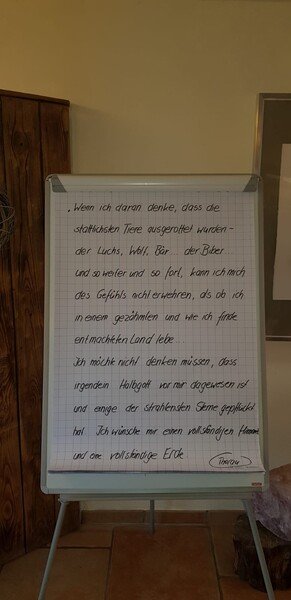 . Wenn ich daran denke, dass die
stattlichsten Tiere ausgerottet wurden -
der Luchs, Wolf, Bär... der Biber...
und so weiter und so fort, kann ich mich
des Gefühls nicht erwehren, als ob ich
in einem gezähmten und wie ich finde
entmachteten Land lebe...
Ich möchte nicht denken müssen, dass
irgendein Halbgott vor mir dagewesen ist
und einige der strahlendsten Sterne gepflückt
hat. Ich wünsche mir einen vollständigen Himmel
und eine vollständige Erde